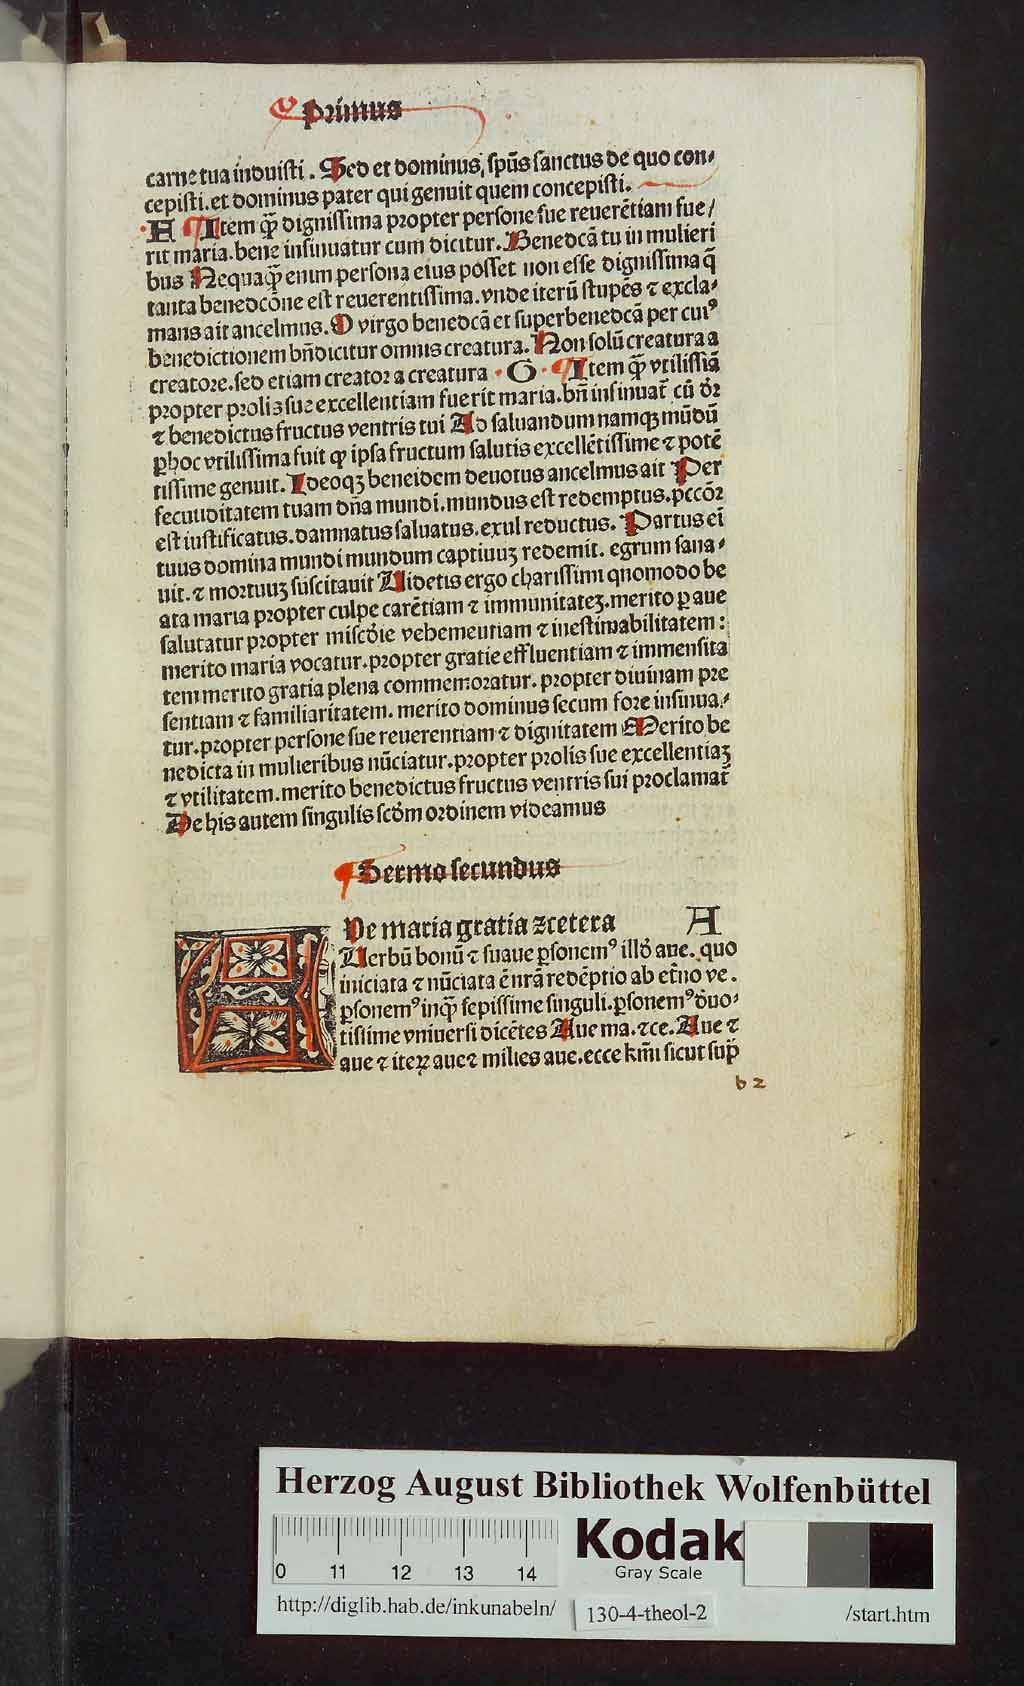 Primus
carne tua induisti. Sed et dominus, spūs sanctus de quo con-
cepisti. et dominus pater qui genuit quem concepisti.
H ¶ Item qꝫ dignissima propter persone sue reuerētiam fue/
rit maria. bene insinuatur cum dicitur. Benedcā tu in mulieri
bus Nequaqꝫ enim persona eius posset non esse dignissima q̄
tanta benedcōne est reuerentissima. vnde iterū stupēs ⁊ excla-
mans ait ancelmus. O virgo benedcā et superbenedcā per cuiꝰ
benedictionem bn̄dicitur omnis creatura. Non solū creatura a
creatore. sed etiam creator a creatura · G · ¶ Item qꝫ vtilissīa
propter prolis sue excellentiam fuerit maria. bn̄ insinuat̄ cū dr̄
⁊ benedictus fructus ventris tui Ad saluandum namqꝫ mūdū
ꝑ hoc vtilissima fuit ꝙ ipsa fructum salutis excellētissime ⁊ potē
tissime genuit. Ideoqꝫ beneidem deuotus ancelmus ait Per
fecuuditatem tuam dn̄a mundi. mundus est redemptus. pccōr
est iustificatus. damnatus saluatus. exul reductus. Partus eī
tuus domina mundi mundum captiuuꝫ redemit. egrum sana-
uit. ⁊ mortuuꝫ suscitauit Uidetis ergo charissimi qnomodo be
ata maria propter culpe carētiam ⁊ immunitateꝫ. merito ꝑ aue
salutatur propter miscd̄ie vehementiam ⁊ inestimabilitatem :
merito maria vocatur. propter gratie effluentiam ⁊ immensita
tem merito gratia plena commemoratur. propter diuinam pre
sentiam ⁊ familiaritatem. merito dominus secum fore insinua-
tur. propter persone sue reuerentiam ⁊ dignitatem Merito be
nedicta in mulieribus nūciatur. propter prolis sue excellentiaꝫ
⁊ vtilitatem. merito benedictus fructus ventris sui proclamat̄
De his autem singulis scd̄m ordinem videamus
¶ Sermo secundus
A
Ue maria gratia ⁊cetera A
Uerbū bonū ⁊ suaue ꝑsonemꝰ illd̄ aue. quo
iniciata ⁊ nūciata ē nrā redēptio ab et̄no ve.
ꝑsonemꝰ inqꝫ sepissime singuli. ꝑsonemꝰ d̄uo-
tissime vniuersi dicētes Aue ma. ⁊ce. Aue ⁊
aue ⁊ iteꝝ aue ⁊ milies aue. ecce km̄i sicut sup̄
b 2
Herzog August Bibliothek Wolfenbüttel
0 11 12 13 14
Kodak
Gray Scale
http://diglib.hab.de/inkunabeln/ 130-4-theol-2 /start.htm